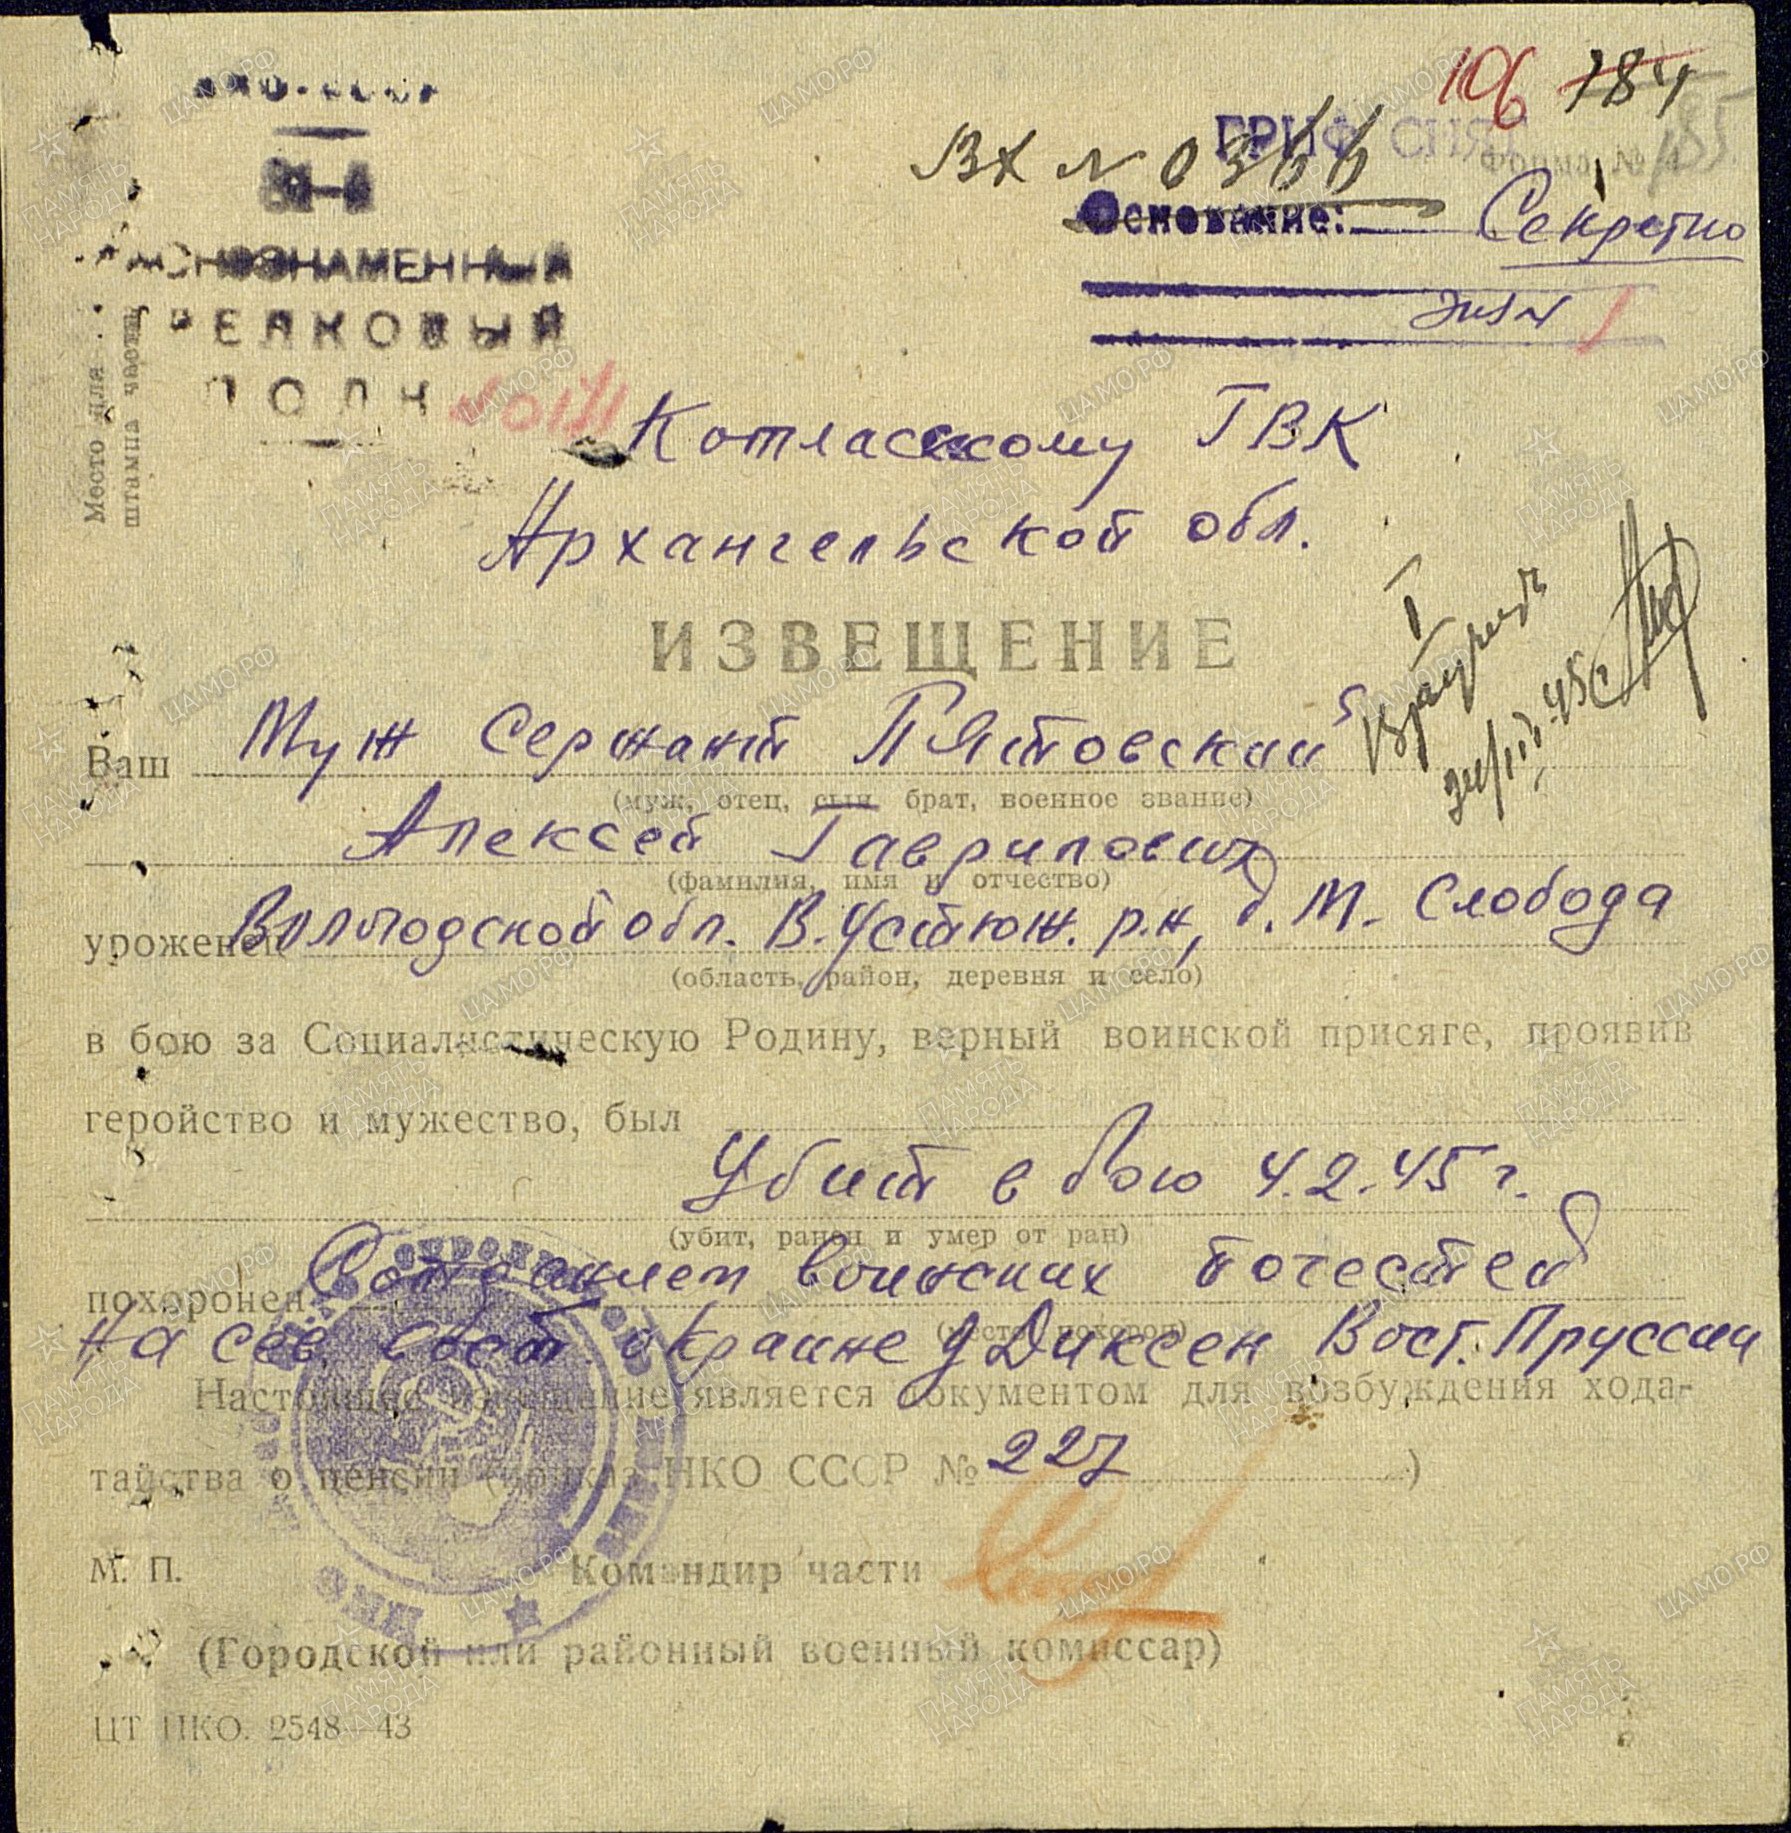 106 184
185
ГРИФ СНЯТ
Форма №
Вх N 0366
Основание:
Секретно
экз N 1
КРАСНОЗНАМЕННЫЙ
СТРЕЛКОВЫЙ
ПОЛК
Место для
штампа части
Котласскому ГВК
Архангельской обл.
ИЗВЕЩЕНИЕ
Ваш Муж Сержант Пятовский
(муж, отец, сын, брат, военное звание)
Алексей Гаврилович
(фамилия, имя и отчество)
уроженец Вологодской обл. В.Устюж. р.н, д. М. Слобода
(область, район, деревня и село)
в бою за Социалистическую Родину, верный воинской присяге, проявив
геройство и мужество, был
Убит в бою 4.2.45 г.
(убит, ранен и умер от ран)
похоронен С отданием воинских почестей
(место похорон)
на сев. вост. окраине д Диксен Вост. Пруссии
Настоящее извещение является документом для возбуждения хода-
тайства о пенсии (приказ НКО СССР № 227 )
М. П. Командир части
(Городской или районный военный комиссар)
ЦТ НКО. 2548—43
ПАМЯТЬ НАРОДА
ЦАМО.РФ